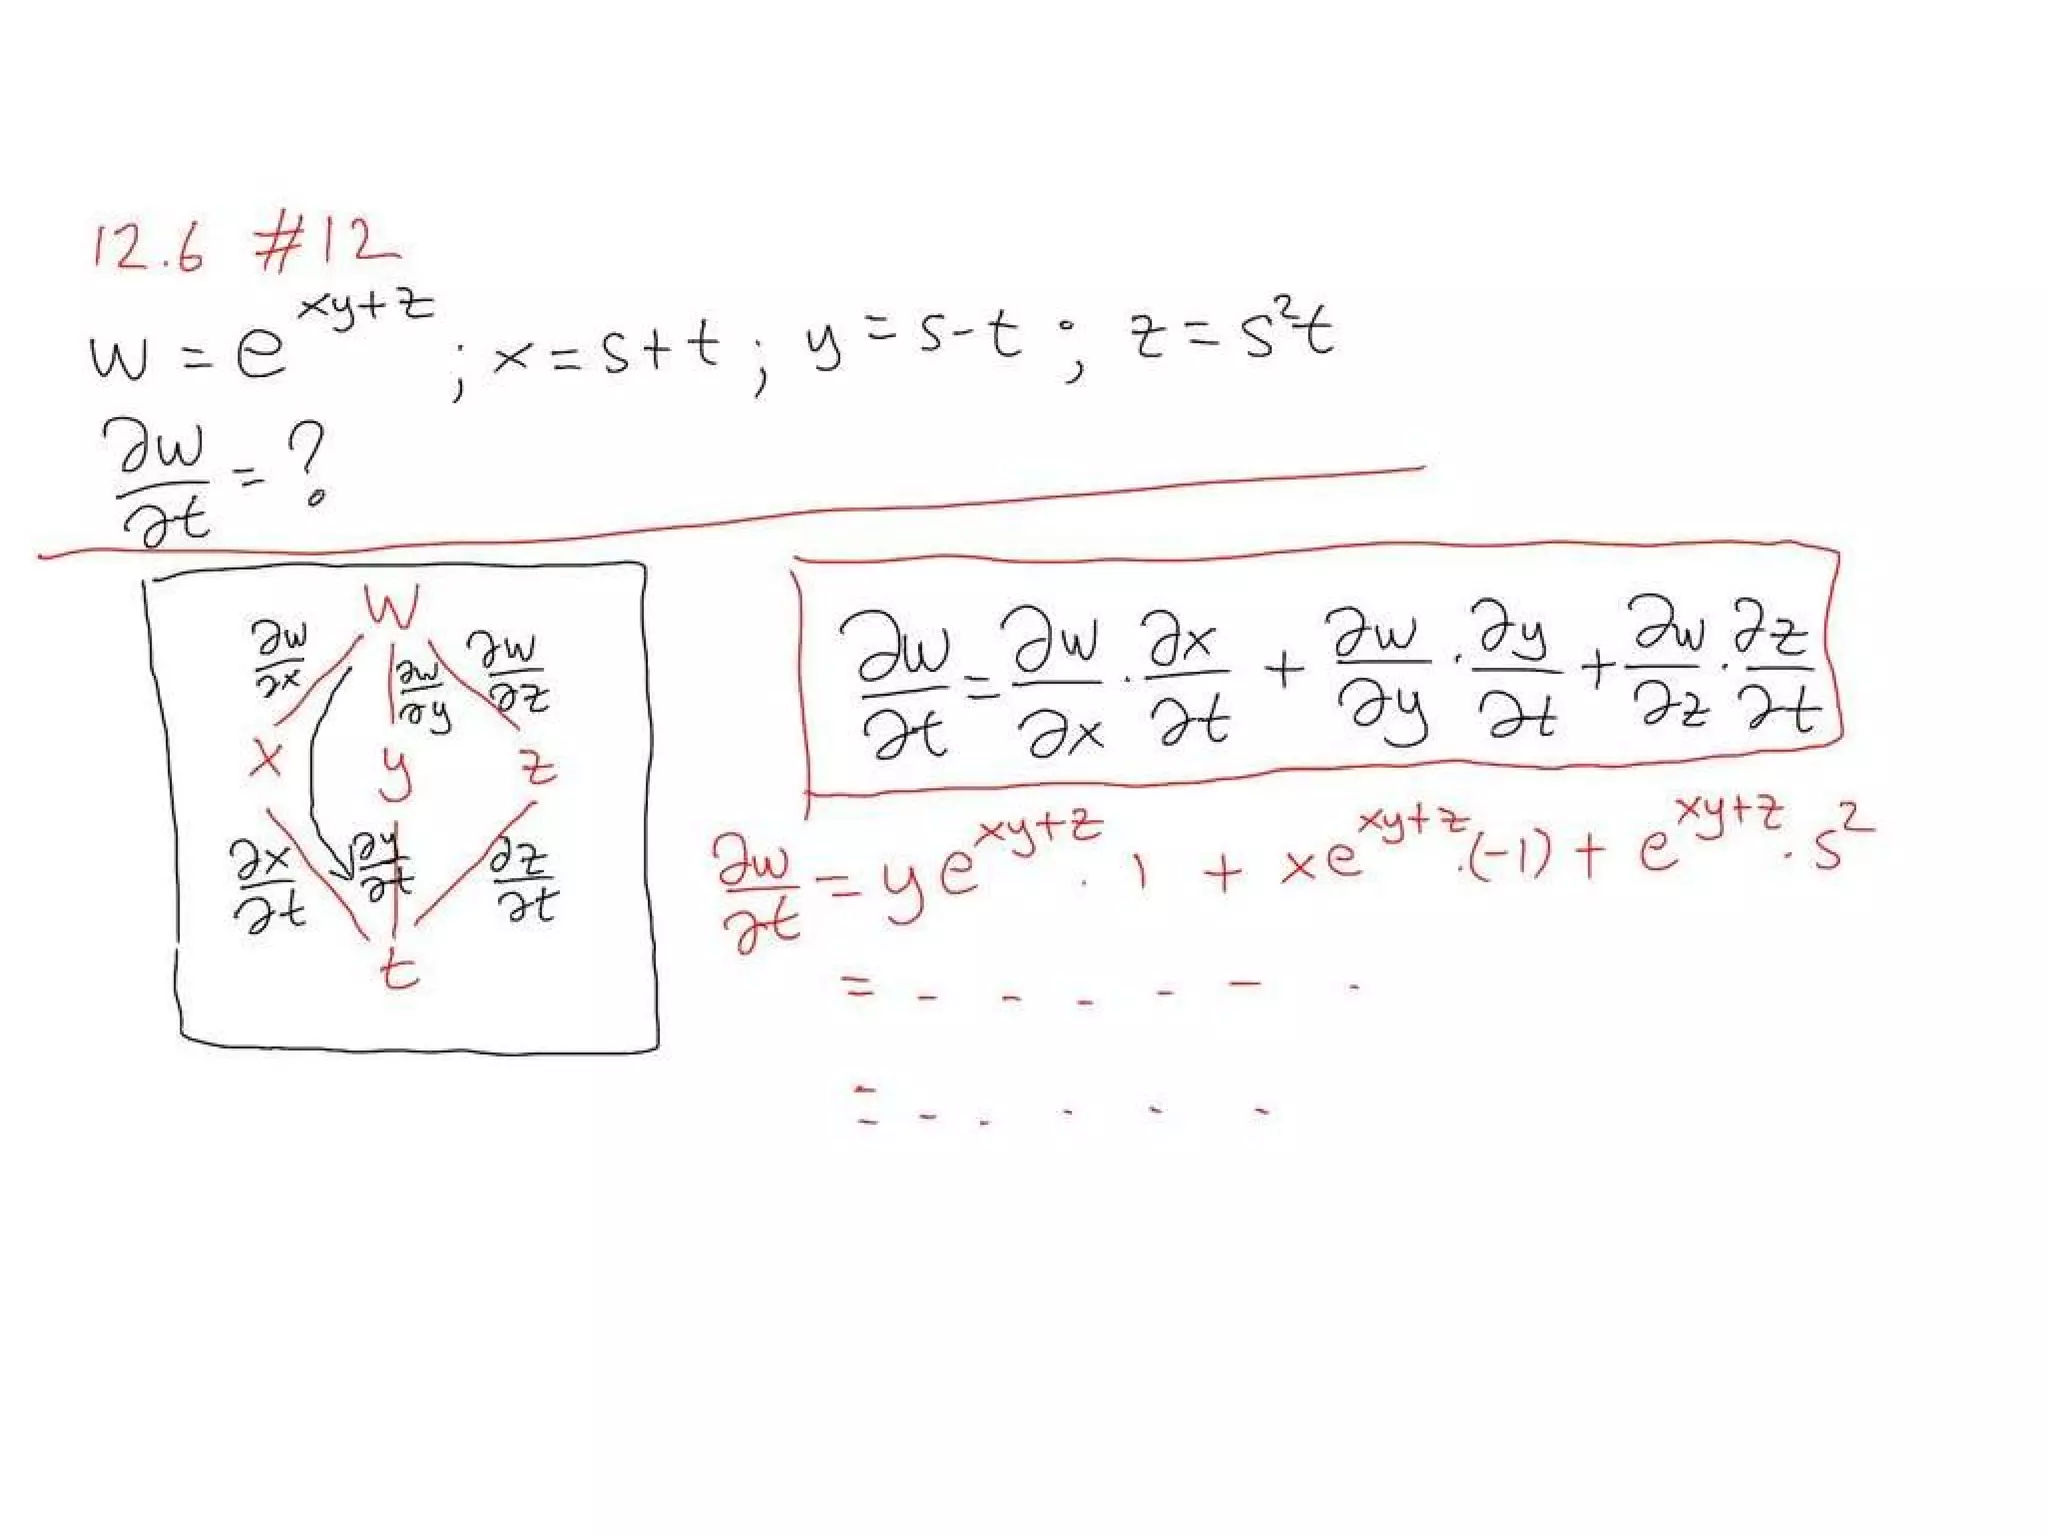 12.6 #12
w = e^{xy+z} ; x = s+t ; y = s-t ; z = s²t
∂w/∂t = ?
w
∂w/∂x ∂w/∂y ∂w/∂z
x y z
∂x/∂t ∂y/∂t ∂z/∂t
t
∂w/∂t = ∂w/∂x · ∂x/∂t + ∂w/∂y · ∂y/∂t + ∂w/∂z · ∂z/∂t
∂w/∂t = ye^{xy+z} · 1 + xe^{xy+z} · (-1) + e^{xy+z} · s²
= - - - - - -
= - - - - -